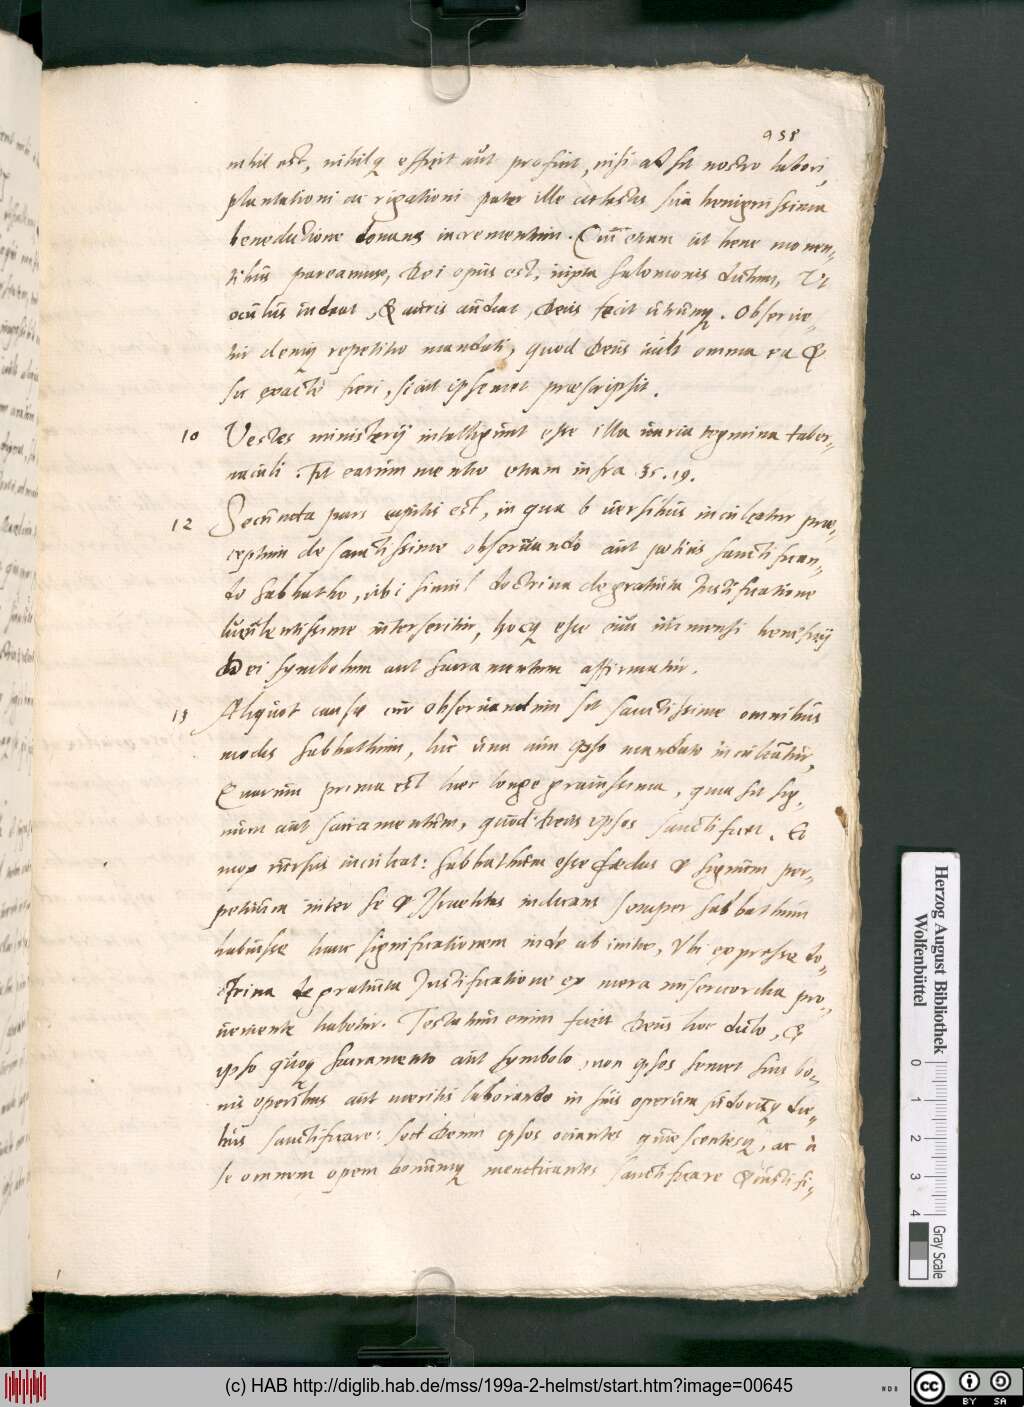 958
nihil est, nihilq́ efficit aut proficit, nisi adsit nostro labori,
plantationi ac rigationi pater ille cælestis sua benignissima
benedictione donans incrementum. Cuius etiam ut bene monen-
tibus pareamus, Dei opus est, iuxta Salomonis dictum, Ut
oculus uideat, & auris audiat, Deus fecit utrunq́. Obserue-
tur deniq́ repetitio mandati, quod Deus uult omnia ea &
sic exactè fieri, sicut ipsemet præscripsit.
10 Vestes ministerij intelligunt esse illa uaria tegmina taber-
naculi. Fit earum mentio etiam infra 35.19.
12 Secunda pars capitis est, in qua 6 uersibus inculcatur præ-
ceptum de sanctissime obseruando aut potius sanctifican-
do sabbatho, ubi simul doctrina de gratuita Iustificatione
luculentissime interseritur, hocq́ esse eius immensi beneficij
Dei symbolum aut sacramentum affirmatur.
13 Aliquot causæ cur obseruandum sit sanctissime omnibus
modis sabbathum, hic una cum ipso mandato inculcatur,
Quarum prima est hæc longe grauissima, quia sit sig-
num aut sacramentum, quod Deus ipsos sanctificet. Et
mox rursus inculcat: sabbathum esse fœdus & signum per-
petuum inter se & Israelitas indicans semper sabbathum
habuisse hanc significationem inde ab initio, Ubi expresse do-
ctrina de gratuita Iustificatione ex mera misericordia pro-
ueniente habetur. Testatum enim facit Deus hoc dicto, &
ipso quoq́ sacramento aut symbolo, non ipsos semet suis bo-
nis operibus aut meritis laborando in suis operum sudorumq́ die-
bus sanctificare: sed Deum ipsos ociantes quiescentesq́, ac à
se omnem opem bonumq́ mendicantes sanctificare & iustifi-
Herzog August Bibliothek
Wolfenbüttel
0 1 2 3 4
Gray Scale
(c) HAB http://diglib.hab.de/mss/199a-2-helmst/start.htm?image=00645
cc BY SA